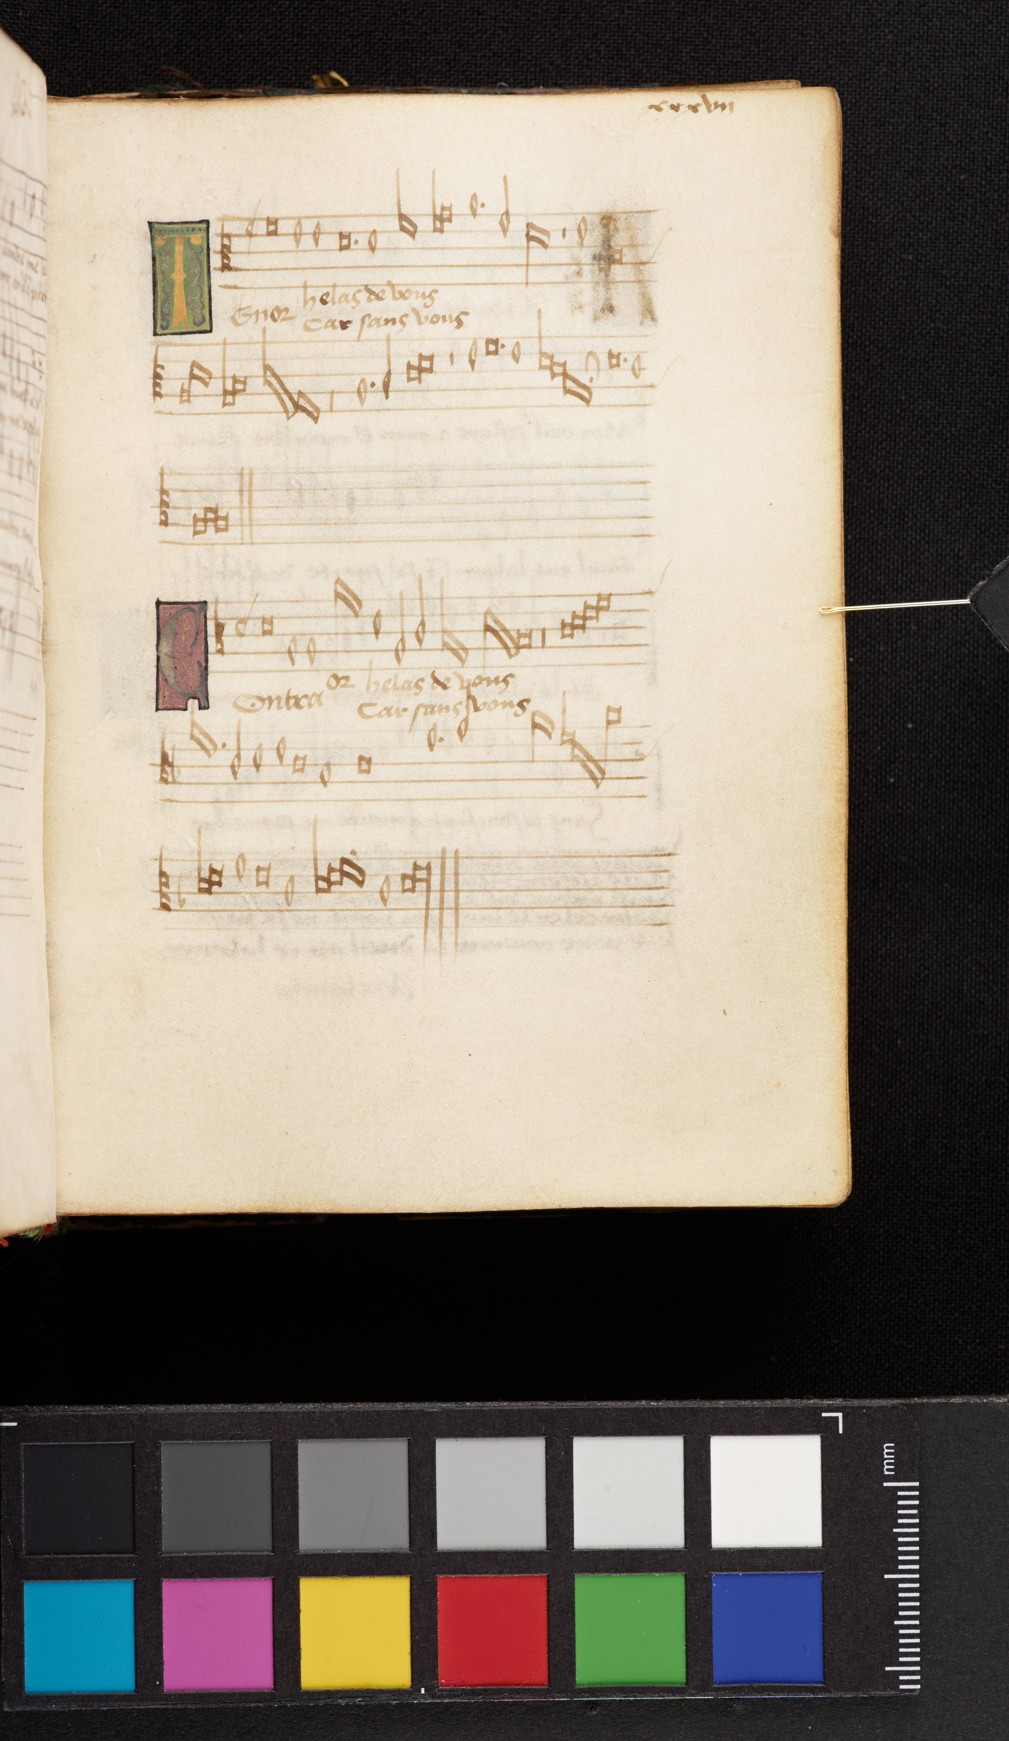 xxxviii
Tenor helas de vous
Car sans vous
Contra or helas de vous
Car sans vous
mm